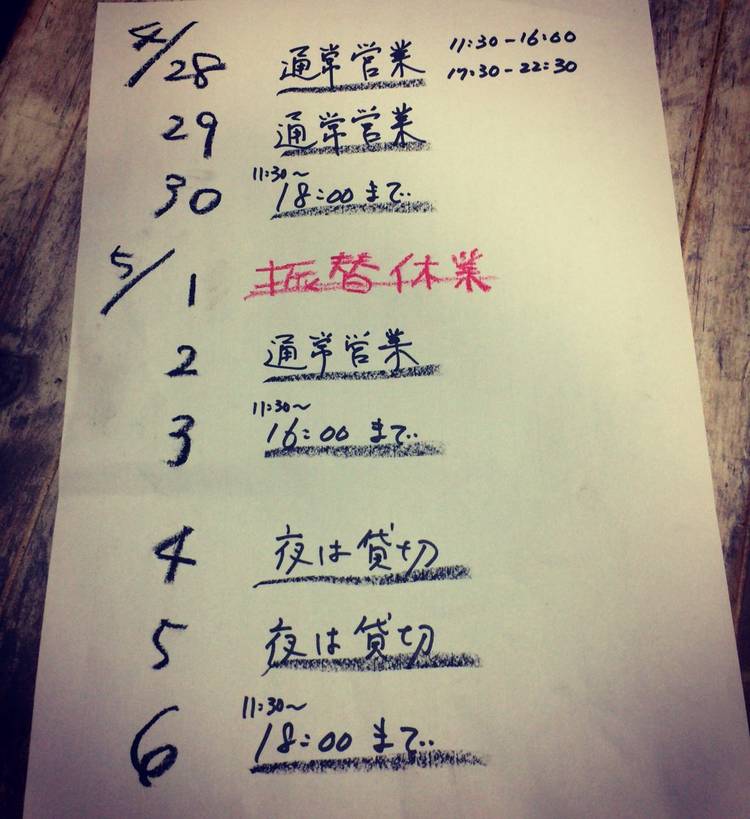 4/28 通常営業 11:30-16:00
17:30-22:30
29 通常営業
30 11:30〜
18:00まで
5/1 振替休業
2 通常営業
3 11:30〜
16:00まで
4 夜は貸切
5 夜は貸切
6 11:30〜
18:00まで